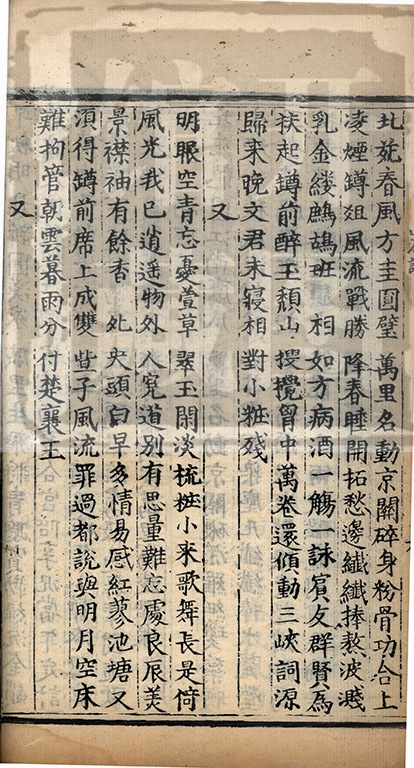 北苑春風方圭圓璧萬里名動京關碎身粉骨功合上
凌煙罇俎風流戰勝降春睡開拓愁邊纖纖捧熬波濺
乳金縷鷓鴣班相如方病酒一觴一詠賓友群賢為
扶起罇前醉玉頹山搜攪胷中萬卷還傾動三峽詞源
歸来晚文君未寢相對小粧殘
又
明眼空青忘憂萱草翠玉閑淡梳粧小来歌舞長是倚
風光我已逍遥物外人寃道別有思量難忘處良辰美
景襟袖有餘香夗央頭白早多情易感紅蓼池塘又
湏得罇前席上成雙些子風流罪過都說與明月空床
難拘管朝雲暮雨分付楚襄王
又